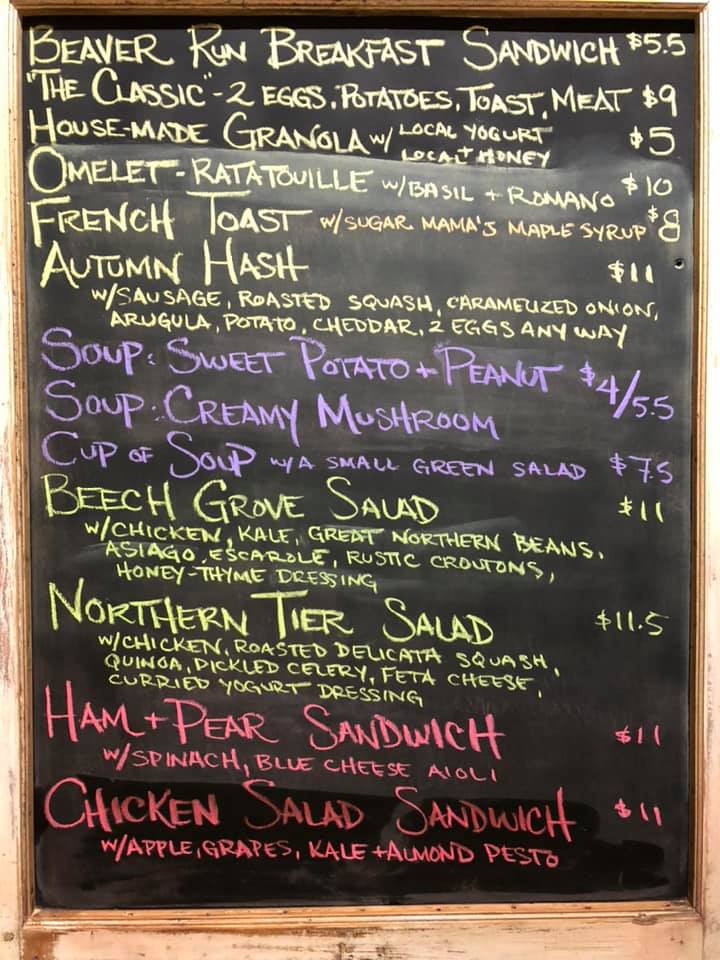 BEAVER RUN BREAKFAST SANDWICH $5.5
"THE CLASSIC" - 2 EGGS, POTATOES, TOAST, MEAT $9
HOUSE-MADE GRANOLA w/ LOCAL YOGURT + $5
LOCAL HONEY
OMELET - RATATOUILLE w/BASIL + ROMANO $10
FRENCH TOAST w/SUGAR MAMA'S MAPLE SYRUP $8
AUTUMN HASH $11
w/SAUSAGE, ROASTED SQUASH, CARAMELIZED ONION,
ARUGULA, POTATO, CHEDDAR, 2 EGGS ANY WAY
SOUP: SWEET POTATO + PEANUT $4/5.5
SOUP: CREAMY MUSHROOM
CUP OF SOUP w/A SMALL GREEN SALAD $7.5
BEECH GROVE SALAD $11
w/CHICKEN, KALE, GREAT NORTHERN BEANS,
ASIAGO, ESCAROLE, RUSTIC CROUTONS,
HONEY-THYME DRESSING
NORTHERN TIER SALAD $11.5
w/CHICKEN, ROASTED DELICATA SQUASH,
QUINOA, PICKLED CELERY, FETA CHEESE,
CURRIED YOGURT DRESSING
HAM + PEAR SANDWICH $11
w/SPINACH, BLUE CHEESE AIOLI
CHICKEN SALAD SANDWICH $11
w/APPLE, GRAPES, KALE + ALMOND PESTO